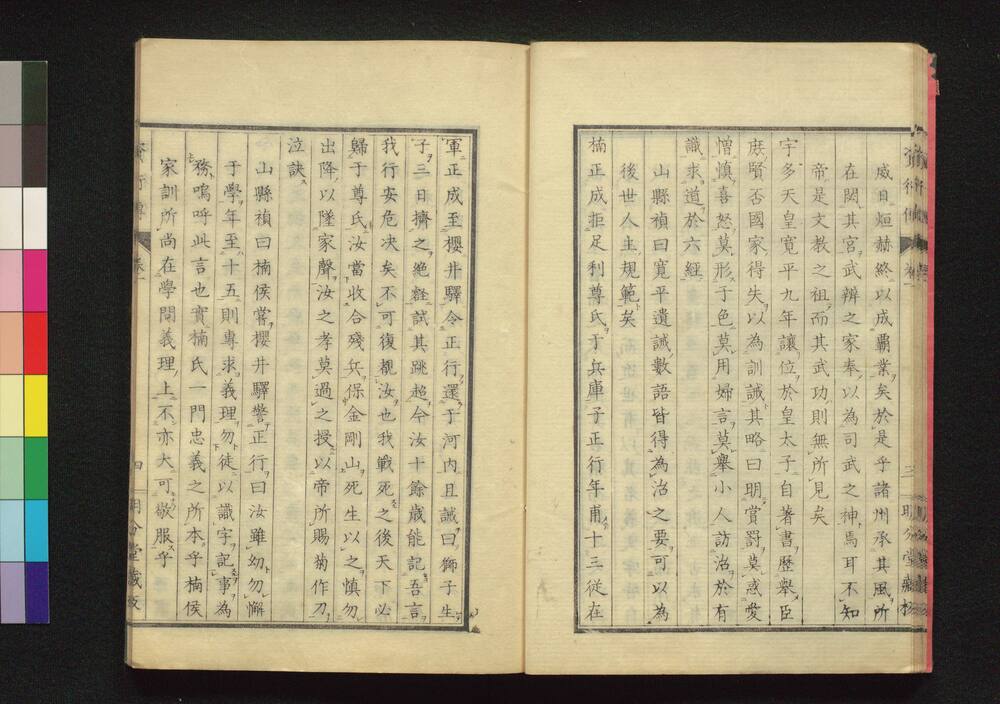 威日烜赫終以成覇業矣於是乎諸州承其風所
在閟其宮武辨之家奉以為司武之神焉耳不知
帝是文教之祖而其武功則無所見矣
宇多天皇寛平九年讓位於皇太子自著書歴擧臣
庶賢否國家得失以為訓誡其略曰明賞罸莫惑愛
憎慎喜怒莫形于色莫用婦言莫擧小人訪治於有
識求道於六經
山縣禎曰寛平遺誡數語皆得為治之要可以為
後世人主規範矣
楠正成拒足利尊氏于兵庫子正行年甫十三從在
軍正成至櫻井驛令正行還于河内且誡曰獅子生
子三日擠之絶壑試其跳超今汝十餘歳能記吾言
我行安危决矣不可復覩汝也我戰死之後天下必
歸于尊氏汝當收合殘兵保金剛山死生以之慎勿
出降以墜家聲汝之孝莫過之授以帝所賜菊作刀
泣訣
山縣禎曰楠侯嘗櫻井驛警正行曰汝雖幼勿懈
于學年至十五則專求義理勿徒以識字記事為
務嗚呼此言也實楠氏一門忠義之所本乎楠侯
家訓所尚在學問義理上不亦大可敬服乎
四
明分堂藏板